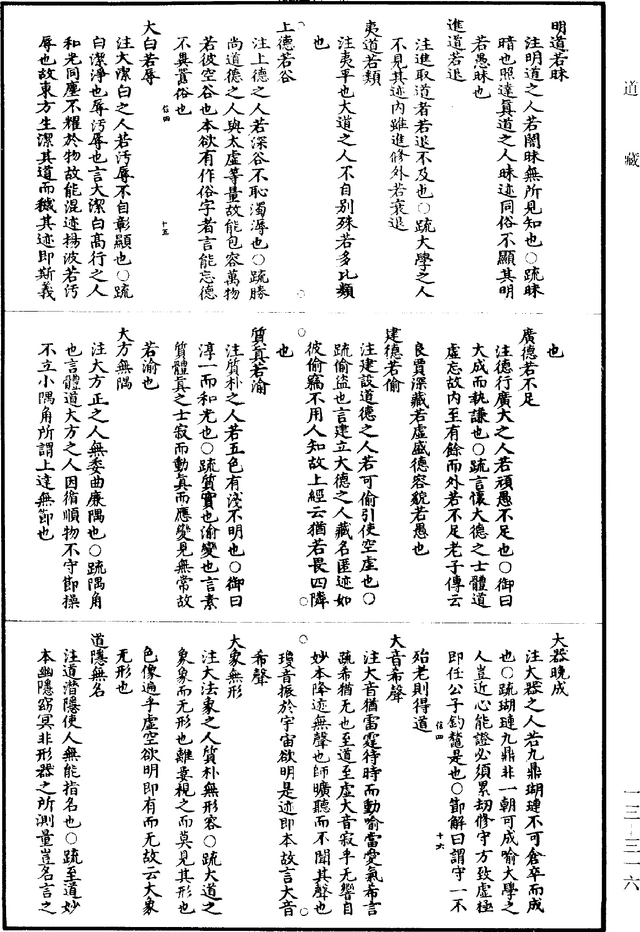 道藏
明道若昧
注明道之人若闇昧無所見知也○疏昧
暗也照達真道之人昧迹同俗不顯其明
若愚昧也
進道若退
注進取道者若退不及也○疏大學之人
不見其迹內雖進修外若衰退
夷道若類
注夷平也大道之人不自別殊若多比類
也
上德若谷
注上德之人若深谷不恥濁溽也○疏勝
尚道德之人與太虛等量故能包容萬物
若彼空谷也本欲有作俗字者言能忘德
不異囂俗也
信四
十五
大白若辱
注大潔白之人若汚辱不自彰顯也○疏
白潔淨也辱汚辱也言大潔白高行之人
和光同塵不耀於物故能混迹揚波若汚
辱也故東方生潔其道而穢其迹即斯義
也
廣德若不足
注德行廣大之人若頑愚不足也○御曰
大成而執謙也○疏言懷大德之士體道
虛忘故內至有餘而外若不足老子傳云
良賈深藏若虛盛德容貌若愚也
建德若偷
注建設道德之人若可偷引使空虛也○
疏偷盜也言建立大德之人藏名匿迹如
彼偷竊不用人知故上經云猶若畏四隣
也
質真若渝
注質朴之人若五色有淺不明也○御曰
淳一而和光也○疏質實也渝變也言素
質體真之士寂而動真而應變見無常故
若渝也
大方無隅
注大方正之人無委曲廉隅也○疏隅角
也言體道大方之人因循順物不守節操
不立小隅角所謂上達無節也
大器晚成
注大器之人若九鼎瑚璉不可倉卒而成
也○疏瑚璉九鼎非一朝可成喻大學之
人豈近心能證必須累劫修守方致虛極
即任公子釣鼇是也○節解曰謂守一不
殆老則得道
信四
十六
大音希聲
注大音猶雷霆待時而動喻當愛氣希言
疏希猶无也至道至虛大音寂乎无響自
妙本降迹無聲也師曠聽而不聞其聲也
瓊音振於宇宙欲明是迹即本故言大音
希聲
大象無形
注大法象之人質朴無形容○疏大道之
象象而无形也離婁視之而莫見其形也
色像遍乎虛空欲明即有而无故云大象
无形也
道隱無名
注道潛隱使人無能指名也○疏至道妙
本幽隱窈冥非形器之所測量豈名言之
一三—三一六